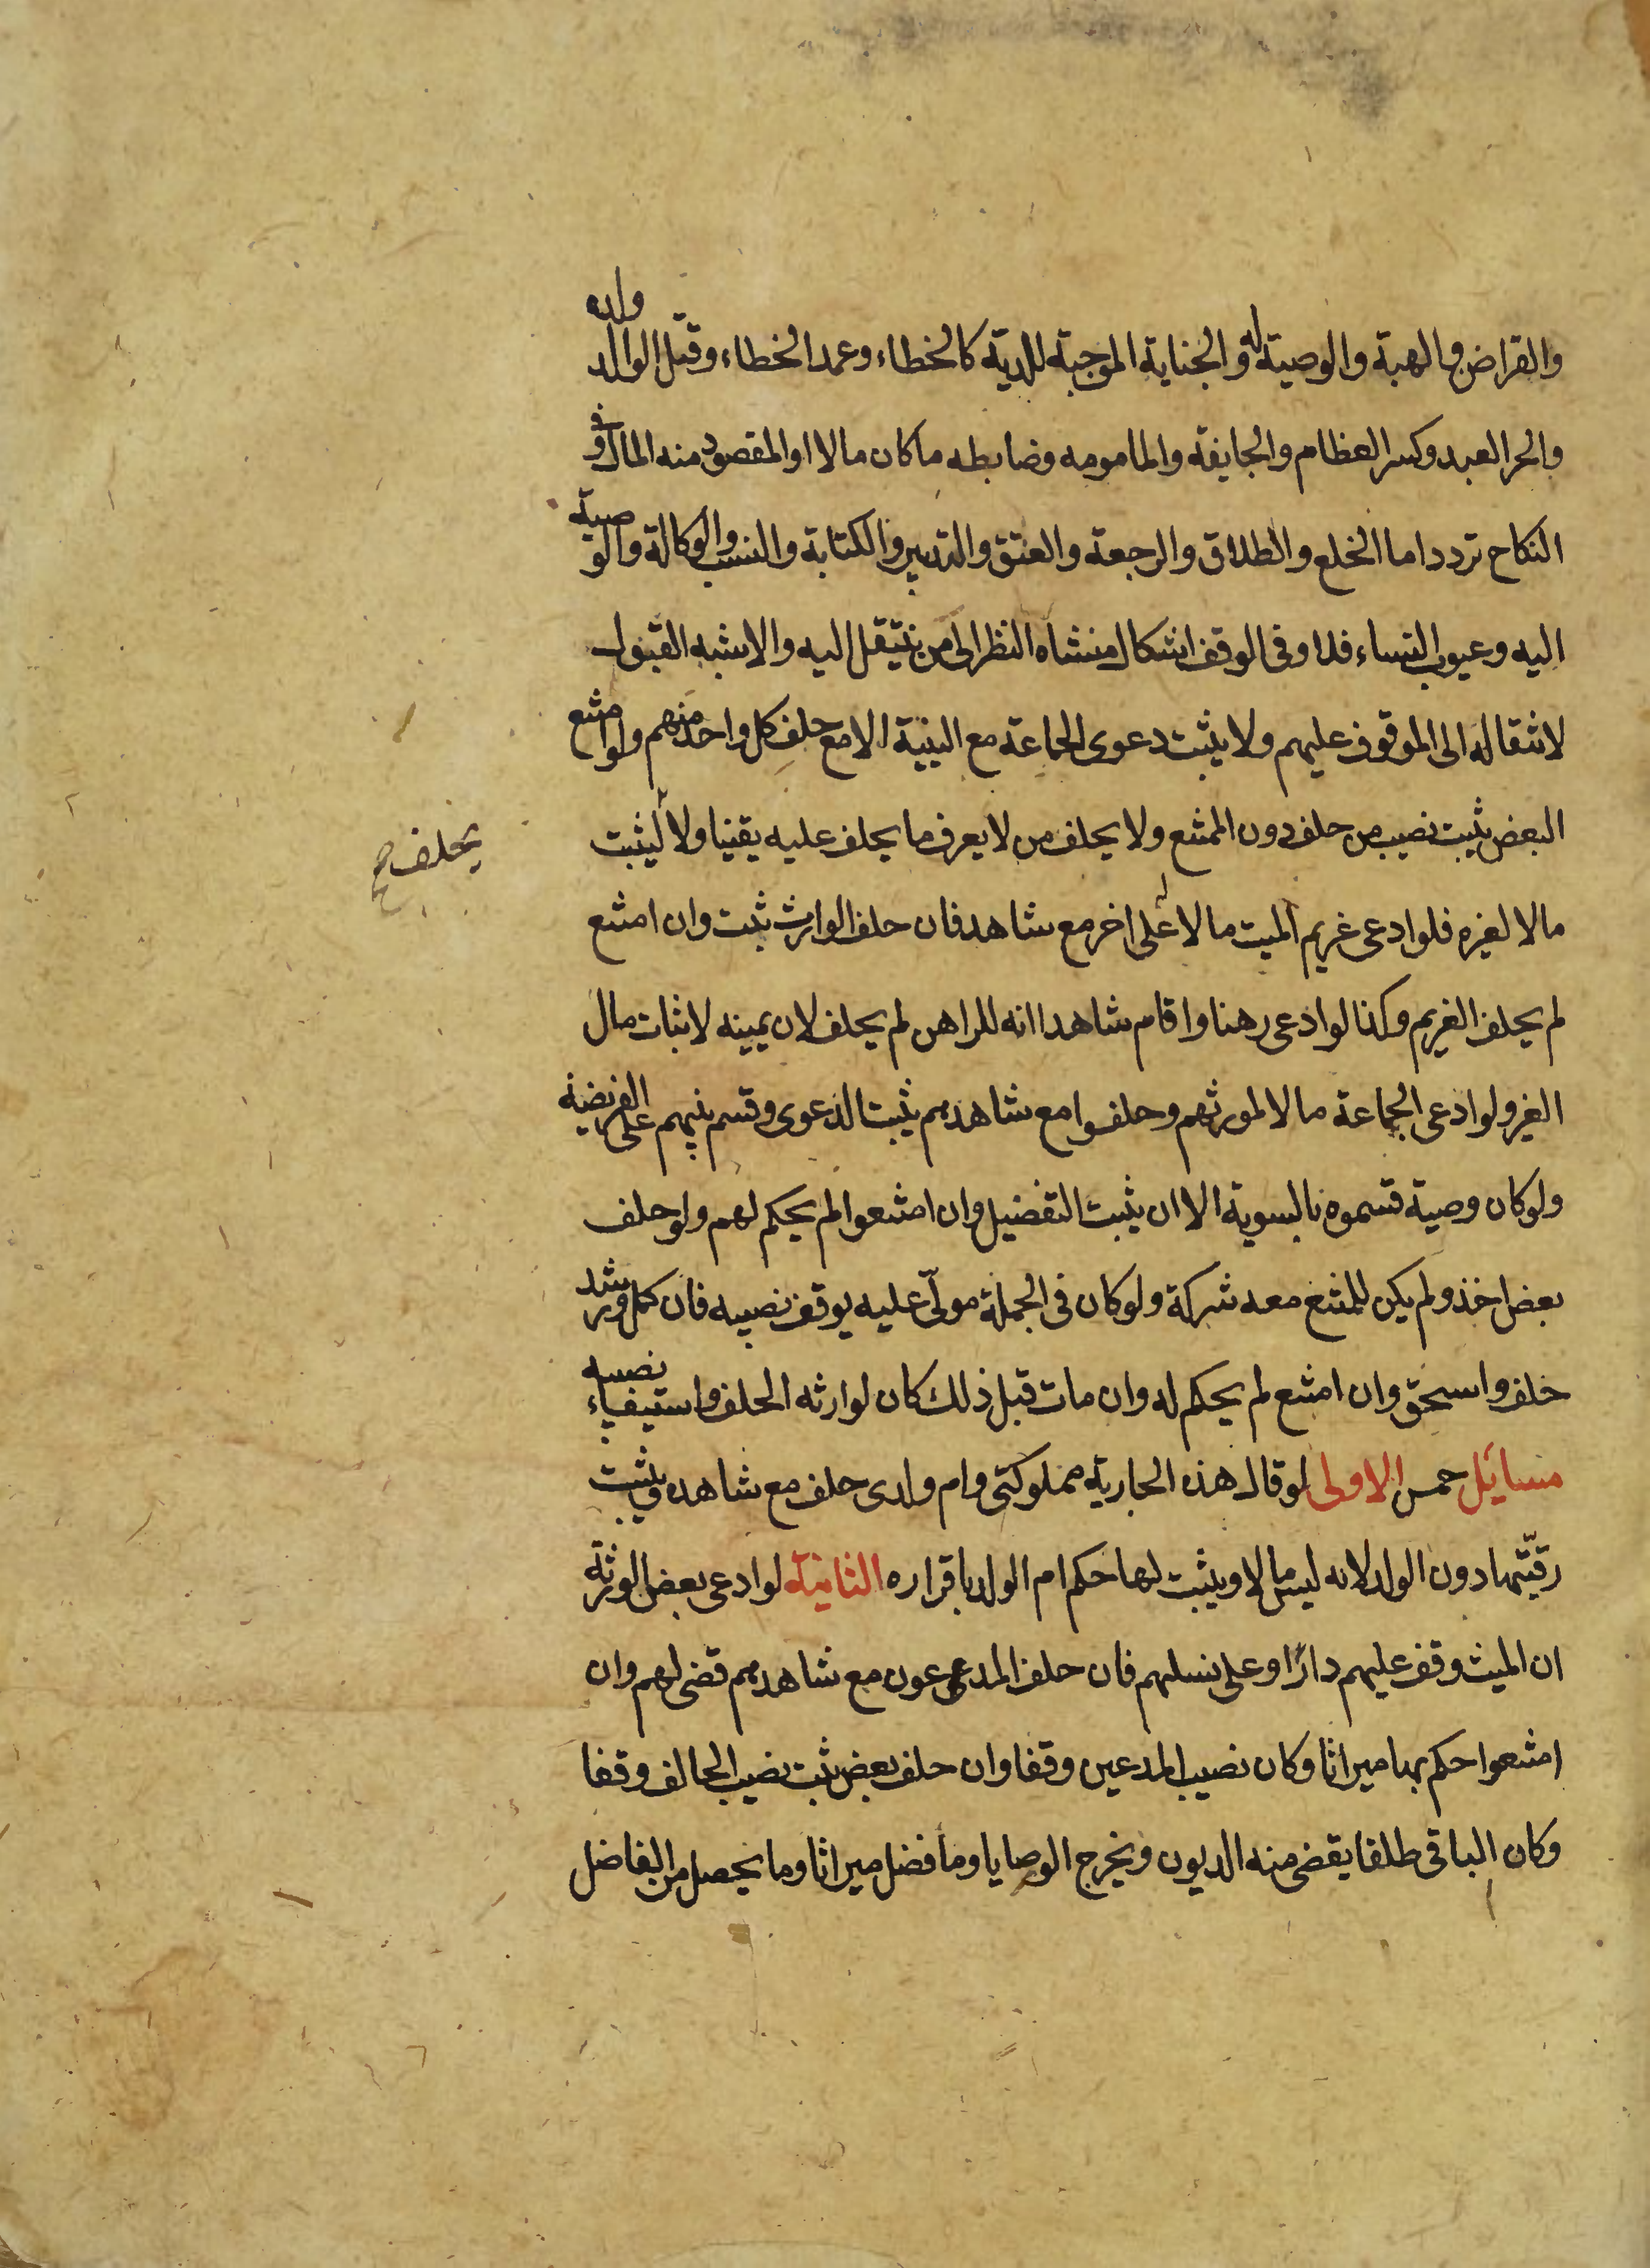 والقراض والهبة والوصية له والجناية الموجبة للدية كالخطاء وعمد الخطاء وقتل الوالد ولده
والحر العبد وكسر العظام والجايفة والمامومه وضابطه ماكان مالا او المقصود منه المال وفى
النكاح تردد اما الخلع والطلاق والرجعة والعتق والتدبير والكتابة والنسب والوكالة والوصية
اليه وعيوب النساء فلا وفى الوقف اشكال منشاه النظر الى من ينتقل اليه والاشبه القبول
لانتقاله الى الموقوف عليهم ولا يثبت دعوى الجماعة مع البينة الا مع حلف كل واحد منهم ولو امتنع
البعض يثبت نصيب من حلف دون الممتنع ولا يحلف من لا يعرف ما يحلف عليه يقينا ولا ليثبت
يحلف صح
مالا لغيره فلو ادعى غريم الميت مالا على اخر مع شاهد فان حلف الوارث ثبت وان امتنع
لم يحلف الغريم وكذا لو ادعى رهنا واقام شاهدا انه للراهن لم يحلف لان يمينه لاثبات مال
الغير ولو ادعى الجماعة مالا لمورثهم وحلفوا مع شاهدهم يثبت الدعوى وقسم بينهم على الفريضة
ولو كان وصية قسموه بالسوية الا ان يثبت التفضيل وان امتنعوا لم يحكم لهم ولو حلف
بعض اخذ ولم يكن للمتنع معه شركة ولو كان فى الجملة مولّى عليه يوقف نصيبه فان كمل ورشد
حلف واستحق وان امتنع لم يحكم له وان مات قبل ذلك كان لوارثه الحلف واستيفاء نصيبه
مسائل خمس الاولى لو قال هذه الجارية مملوكتى وام ولدى حلف مع شاهده ويثبت
رقيّتها دون الولد لانه ليس مالا ويثبت لها حكم ام الولد باقراره الثانية لو ادعى بعض الورثة
ان الميت وقف عليهم دارًا وعلى نسلهم فان حلف المدعون مع شاهدهم قضى لهم وان
امتنعوا حكم بها ميراثا وكان نصيب المدعين وقفا وان حلف بعض ثبت نصيب الحالف وقفا
وكان الباقى طلقا يقضى منه الديون ويخرج الوصايا وما فضل ميراثا وما يحصل من الفاضل